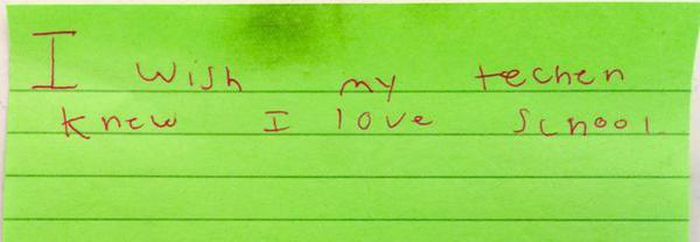 I wish my techen
knew I love school